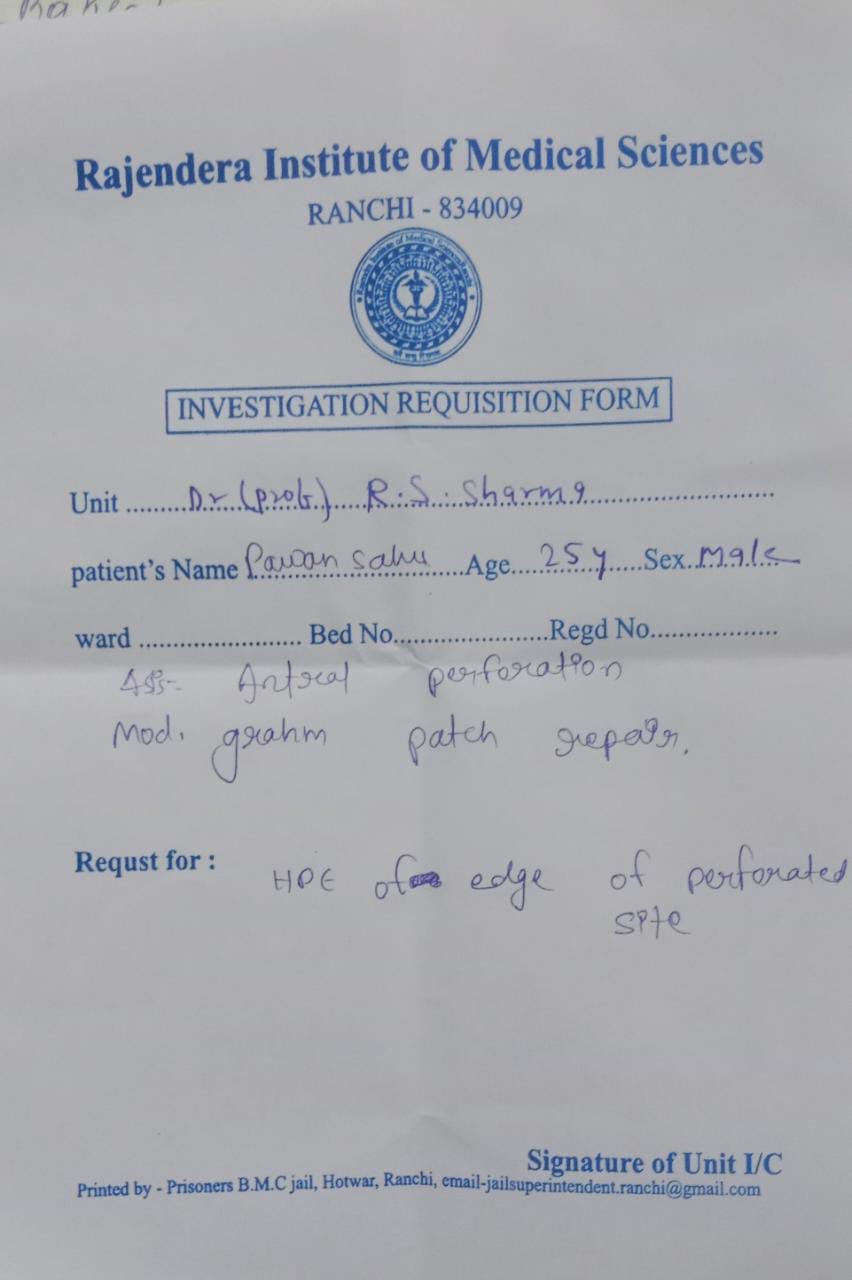 Rajendera Institute of Medical Sciences
RANCHI - 834009
INVESTIGATION REQUISITION FORM
Unit .........Dr (prof) R.S. Sharma..............................
patient's Name Pawan sahu Age....25 y.....Sex..Male
ward ........................ Bed No.......................Regd No...................
Antral perforation
Mod. grahm patch repair.
Requst for : HPE of edge of perforated
site
Signature of Unit I/C
Printed by - Prisoners B.M.C jail, Hotwar, Ranchi, email-jailsuperintendent.ranchi@gmail.com